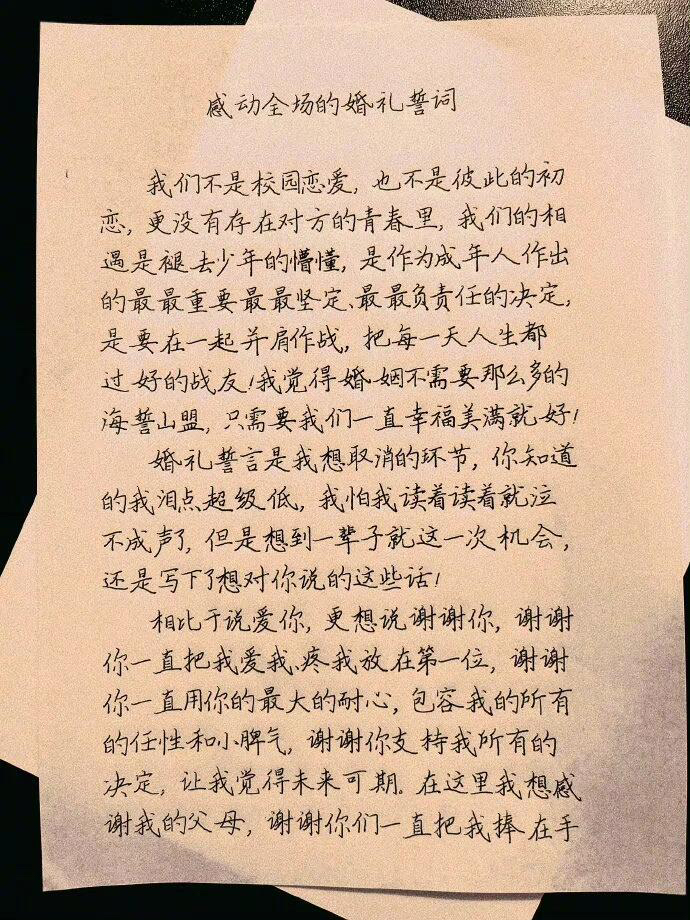 感动全场的婚礼誓词
我们不是校园恋爱，也不是彼此的初
恋，更没有存在对方的青春里，我们的相
遇是褪去少年的懵懂，是作为成年人作出
的最最重要最最坚定、最最负责任的决定，
是要在一起并肩作战，把每一天人生都
过好的战友！我觉得婚姻不需要那么多的
海誓山盟，只需要我们一直幸福美满就好！
婚礼誓言是我想取消的环节，你知道
的我泪点超级低，我怕我读着读着就泣
不成声了，但是想到一辈子就这一次机会，
还是写下了想对你说的这些话！
相比于说爱你，更想说谢谢你，谢谢
你一直把我爱我、疼我放在第一位，谢谢
你一直用你的最大的耐心，包容我的所有
的任性和小脾气，谢谢你支持我所有的
决定，让我觉得未来可期。在这里我想感
谢我的父母，谢谢你们一直把我捧在手